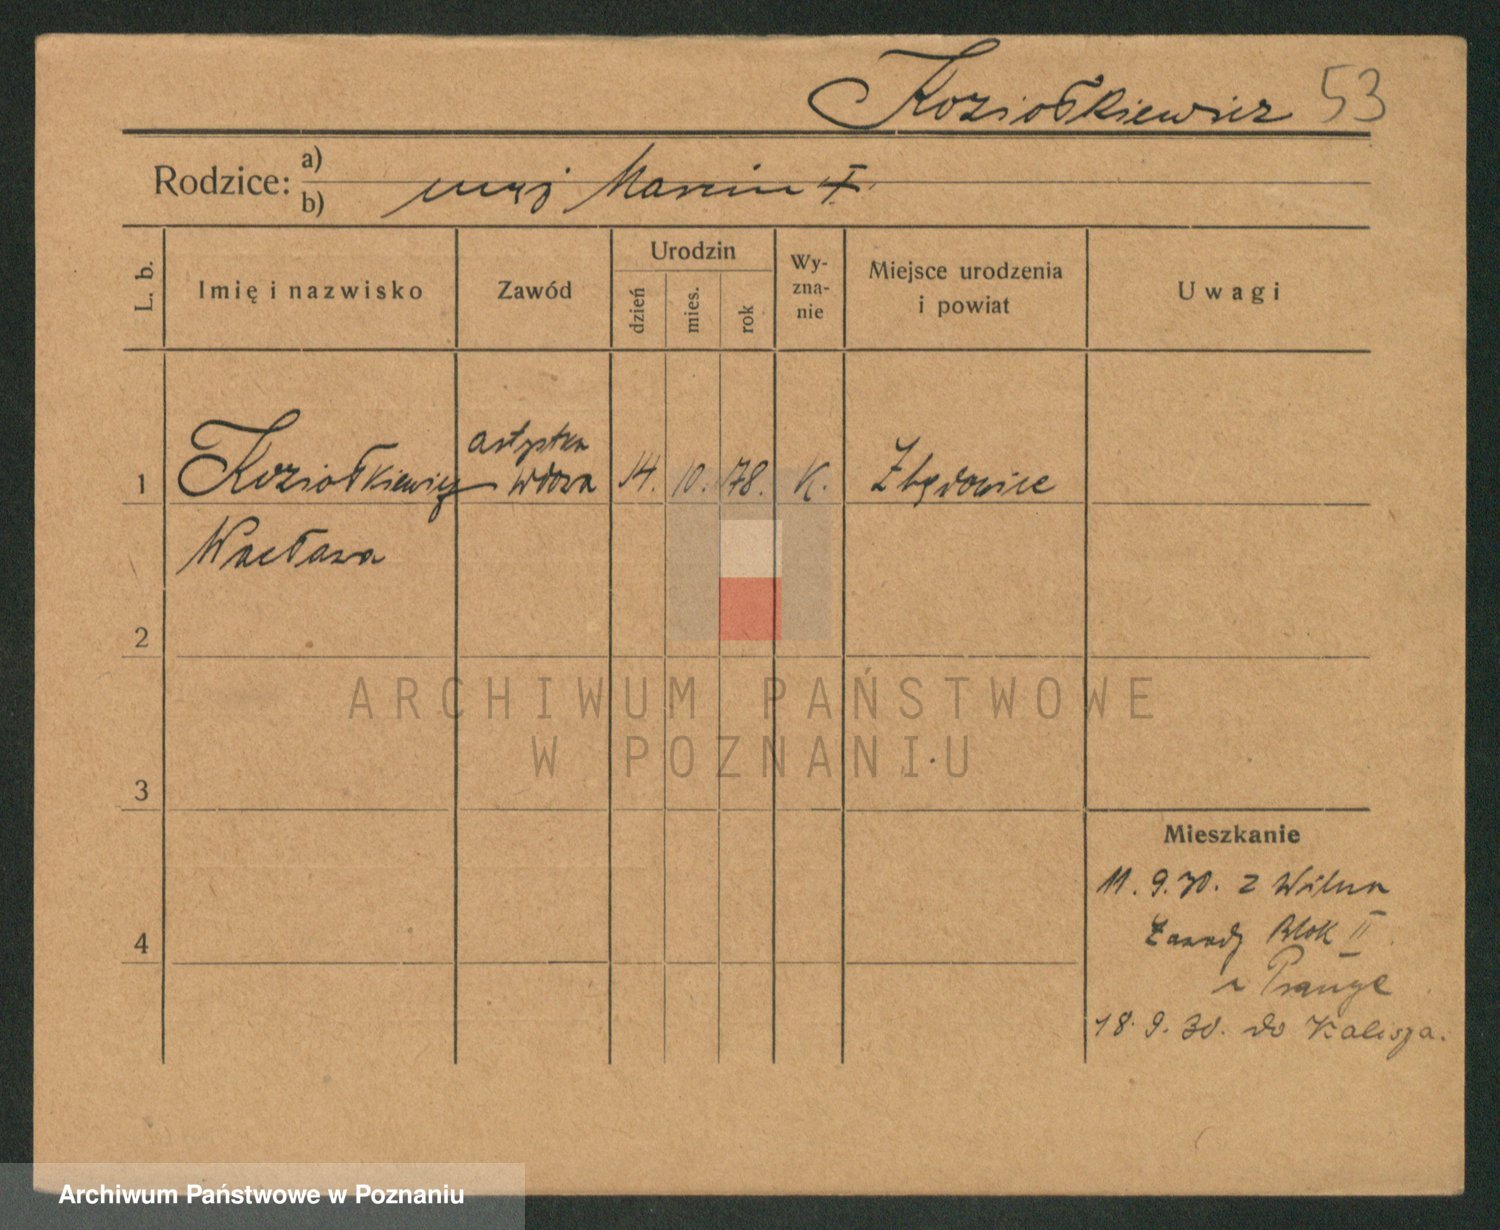 Koziołkiewicz 53
Rodzice: a)
b)
mąż Marcin
L. b.
Imię i nazwisko
Zawód
Urodzin
dzień
mies.
rok
Wy-
zna-
nie
Miejsce urodzenia
i powiat
Uwagi
artystka
1 Koziołkiewicz wdowa 14. 10. 78. K.
Wacława
2
ARCHIWUM PAŃSTWOWE
W POZNANIU
3
Mieszkanie
11. 9. 30. z Wilna
4
Zawady Blok II
u Prange
18. 9. 30. do Kalisza.
Archiwum Państwowe w Poznaniu